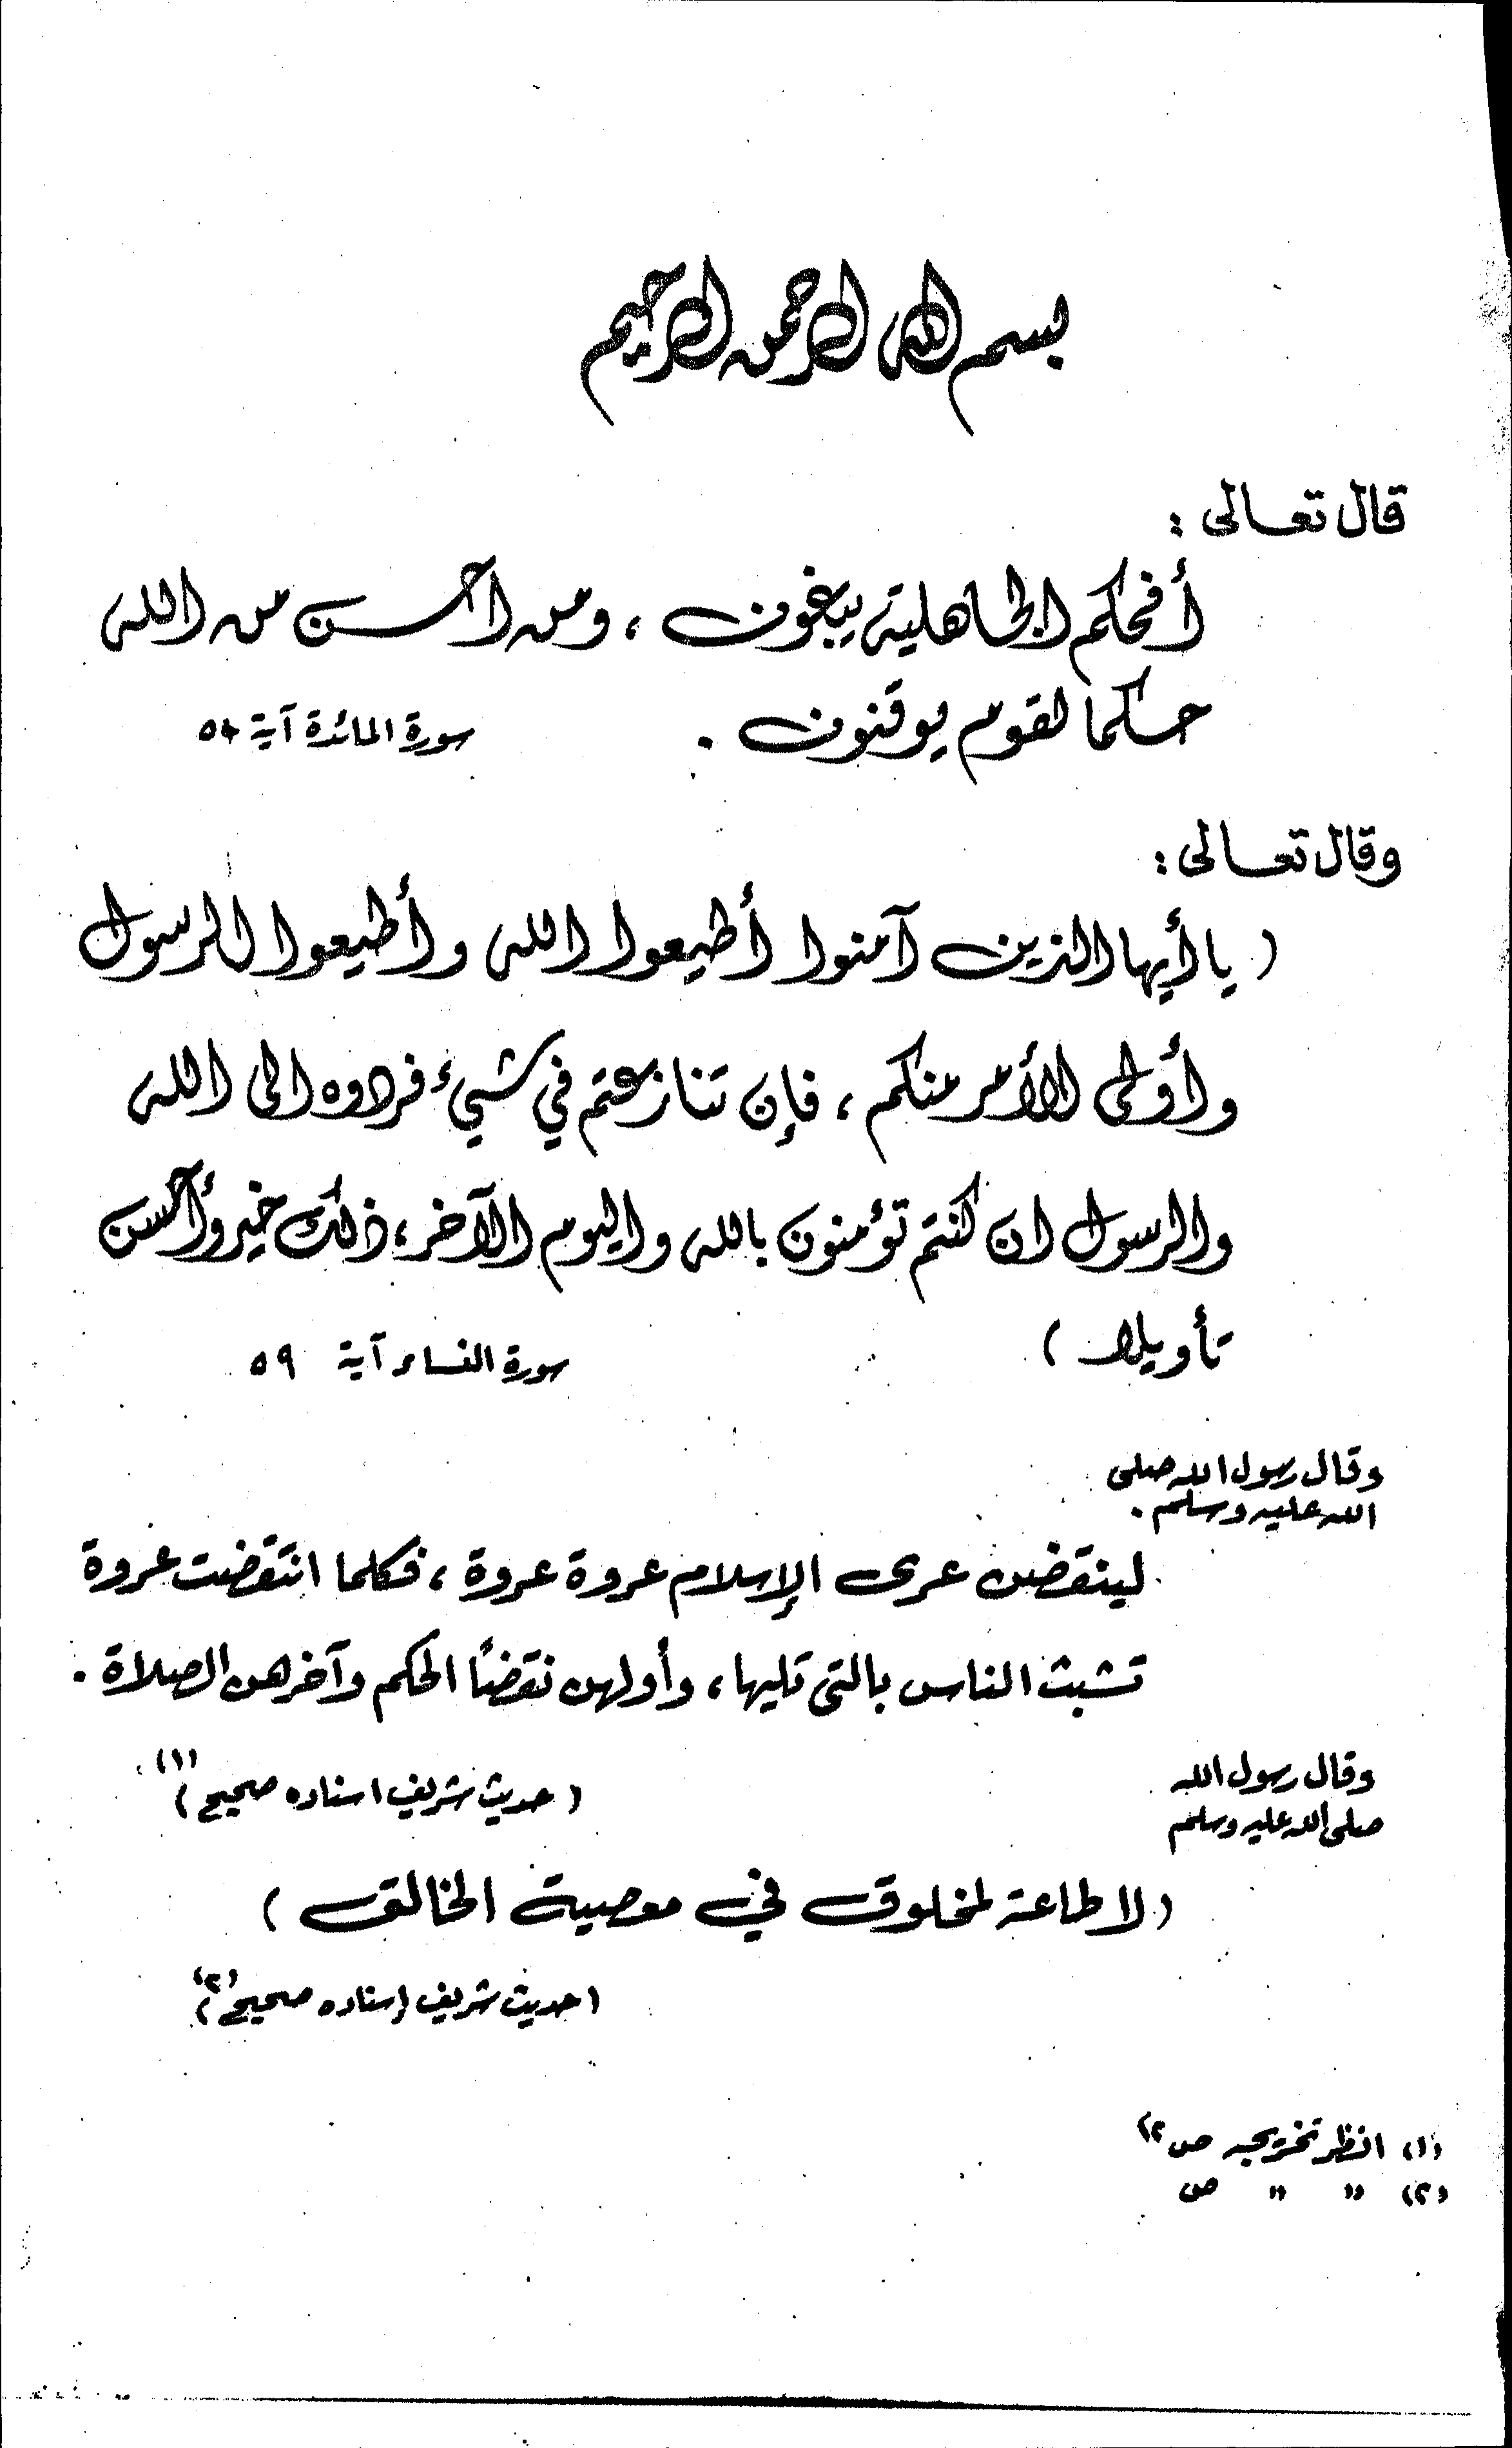 بسم الله الرحمن الرحيم
قال تعالى :
أفحكم الجاهلية يبغون ، ومن احسن من الله
حكما لقوم يوقنون .
سورة المائدة آية
وقال تعالى :
( يا أيها الذين آمنوا أطيعوا الله وأطيعوا الرسول
وأولى الأمر منكم ، فإن تنازعتم في شيء فردوه الى الله
والرسول ان كنتم تؤمنون بالله واليوم الآخر ، ذلك خير وأحسن
تأويلا )
سورة النساء آية ٥٩
وقال رسول الله صلى
الله عليه وسلم .
لينتقضن عرى الإسلام عروة عروة ، فكلما انتقضت عروة
تشبث الناس بالتى تليها ، وأولهن نقضاً الحكم وآخرهن الصلاة .
( حديث شريف اسناده صحيح ) (١)
وقال رسول الله
صلى الله عليه وسلم
( لا طاعة لمخلوق في معصية الخالق )
( حديث شريف إسناده صحيح ) (٢)
(١) انظر تخريجه ص ٢
(٢) " " ص